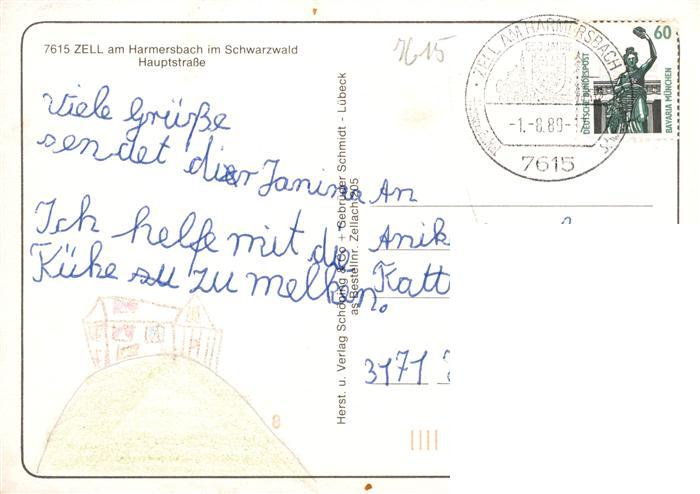 7615 ZELL am Harmersbach im Schwarzwald
Hauptstraße
7615
ZELL AM HARMERSBACH
-1.-8.89-
7615
60
DEUTSCHE BUNDESPOST
BAVARIA MÜNCHEN
Viele Grüße
sendet dir Janina
Ich helfe mit die
Kühe zu zu melken.
An
Anik
Katt
3171
Herst. u. Verlag Schöning & Co + Gebrüder Schmidt - Lübeck
as Bestellnr. Zellach 505
8